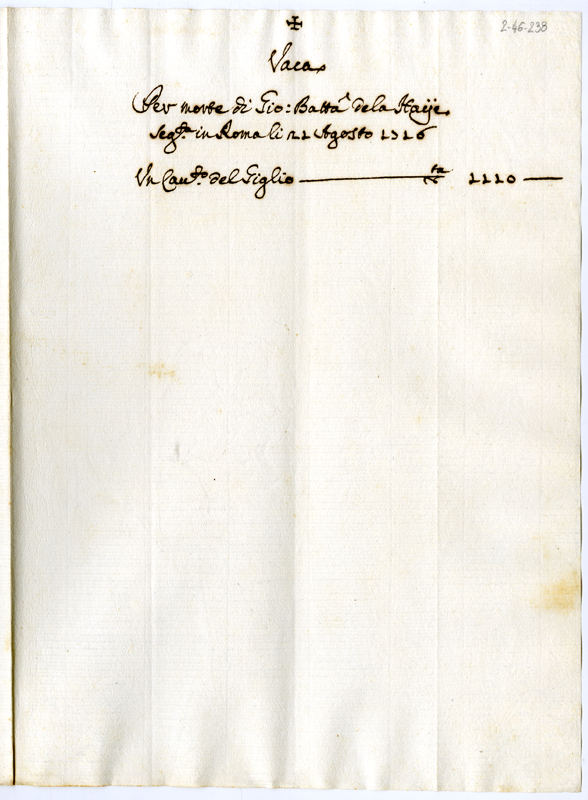 2-46-238
✠
Vaca
Per morte di Gio: Batta dela Haije
Seg.ta in Roma li 21 Agosto 1716
Un Cau.to del Giglio
1110